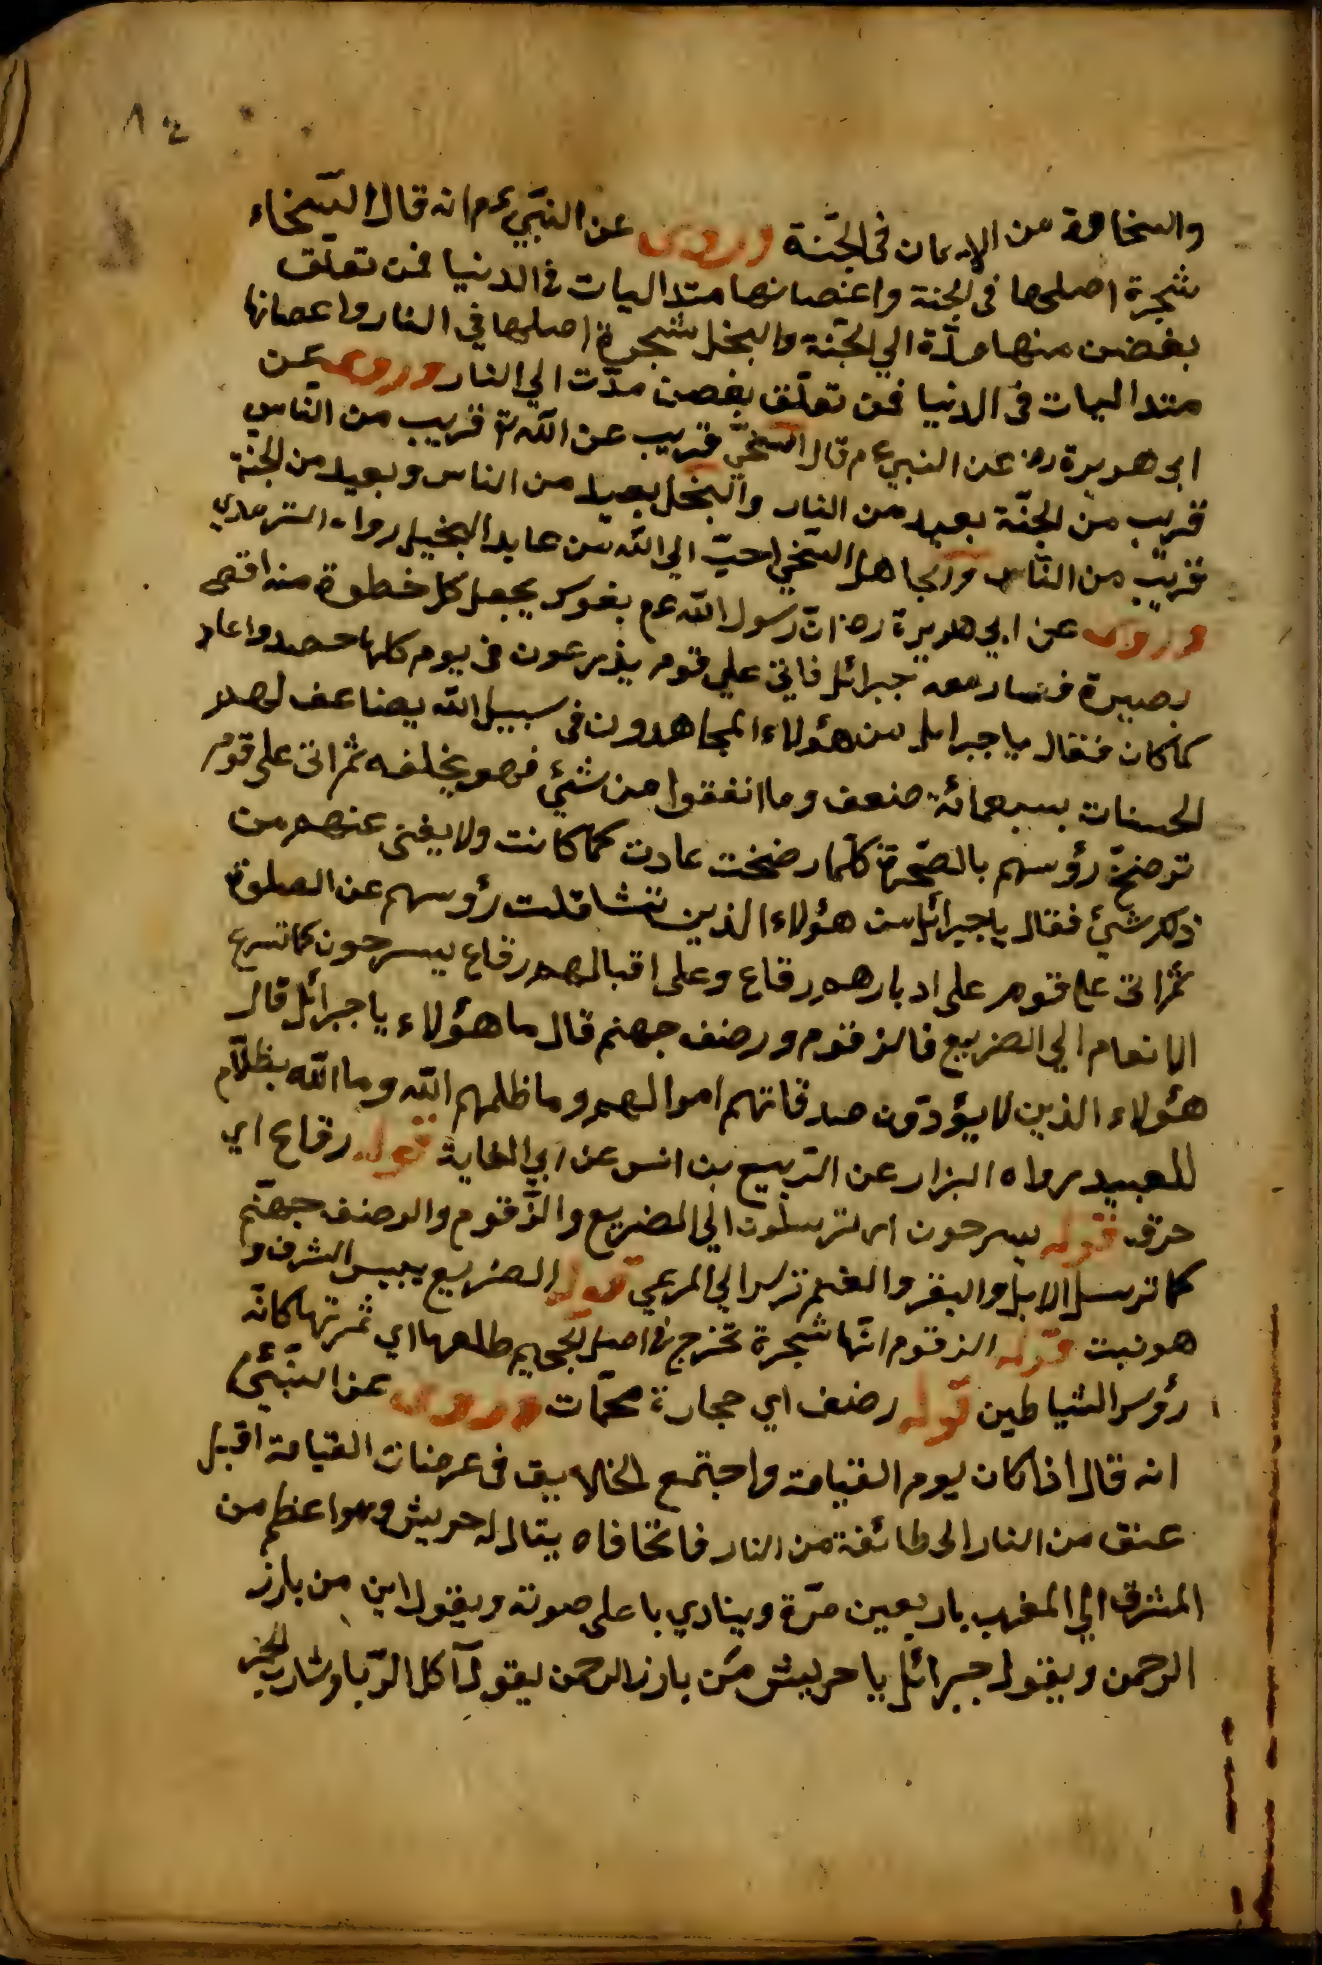 والسخاوة من الايمان في الجنّة وروى عن النبيّ عم انه قال السّخاء
شجرة اصلها في الجنة واغصانها متداليات في الدنيا فمن تعلّق
بغصن منها مدّة الي الجنّة والبخل شجرة اصلها في النار واعصانها
متداليات في الدنيا فمن تعلّق بغصن مدّت الي النار وروى عن
ابي هريرة رض عن النبي عم قال السّخيّ قريب عن اللّه تع قريب من الناس
قريب من الجنّة بعيد من النار والبخل بعيد من الناس وبعيد من الجنّة
قريب من النّاس والجاهل السّخي احبّ الي اللّه من عابد البخيل رواه الترمدي
وروى عن ابي هريرة رض انّ رسول اللّه عم بفرس يجعل كل خطوة منه اقصى
بصيرة فسار معه جبرائل فاتي علي قوم يذرعون في يوم كلما حصدوا عاد
كما كان فقال يا جبرائل من هؤلاء المجاهدون في سبيل اللّه يضاعف لهم
الحسنات بسبعمائة ضعف وما انفقوا من شئ فهو يخلفه ثم اتى على قوم
ترضخ رؤسهم بالصّخرة كلّما رضخت عادت كما كانت ولا يفتى عنهم من
ذكر شئ فقال يا جبرائل من هؤلاء الذين تتثاقلت رؤسهم عن الصلوة
ثمّ اتى على قوم على ادبارهم رقاع وعلى اقبالهم رقاع يسرحون كما تسرع
الانعام الي الضريع فالزقوم ورضف جهنم قال ما هؤلاء يا جبرائل قال
هؤلاء الذين لا يؤدّون صدقاتهم اموالهم وما ظلمهم اللّه وما اللّه بظلّام
للعبيد رواه البزار عن الرّبيع بن انس عن ابي العاية قوله رقاع اي
حرق قوله يسرحون اى ترسلون الي الضريع والزّقوم والرضف جهنّم
كما ترسل الابل والبقر والغنم ترس الي المرعي قوله الضريع يبس الشرف و
هو نبت قوله الزقوم انّها شجرة تخرج في اصل الجحيم طلعها اي ثمرتها كانّه
رؤس الشياطين قوله رضف اي حجارة محمّات وروى عن النّبيّ عم
انه قال اذا كان يوم القيامة واجتمع الخلايق في عرصات القيامة اقبل
عنق من النار الى طائفة من النار يقال له حريش وهو اعظم من
المشرق الي المغرب باربعين مرّة وينادي باعلى صوته ويقول اين من بارز
الرحمن ويقول جبرائل يا حريش مَن بارز الرحمن يقول آكل الرّبا وشارب الخمر